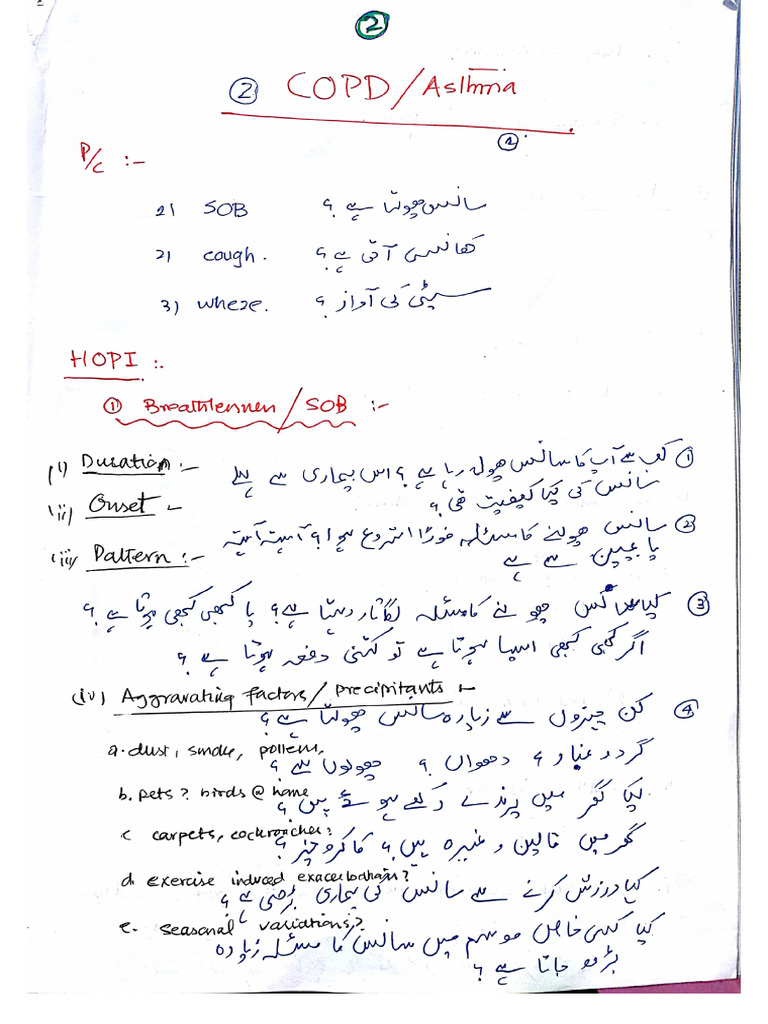 ②
② COPD/Asthma
②
P/C :-
1) SOB سانس پھولتا ہے ؟
2) cough. کھانسی آتی ہے ؟
3) wheeze. سیٹی کی آواز ؟
HOPI :.
① Breathlennen/SOB :-
(i) Duration :- ① کب سے آپ کا سانس پھول رہا ہے ؟ اس بیماری سے پہلے
سانس کی کیا کیفیت تھی ؟
(ii) Onset :- ② سانس پھولنے کا مسئلہ فوراً شروع ہوا ؟ آہستہ آہستہ
(iii) Pattern :- یا بچپن سے ہے
③ کیا سانس پھولنے کا مسئلہ لگاتار رہتا ہے ؟ یا کبھی کبھی ہوتا ہے ؟
اگر کبھی کبھی ایسا ہوتا ہے تو کتنی دفعہ ہوتا ہے ؟
(iv) Aggravating factors/precipitants :-
④ کن چیزوں سے زیادہ سانس پھولتا ہے ؟
a. dust, smoke, pollens, گرد و غبار ؟ دھواں ؟ پھولوں سے ؟
b. pets? birds @ home کیا گھر میں پرندے رکھے ہوئے ہیں ؟
c carpets, cockroaches? گھر میں قالین وغیرہ ہیں ؟ کاکروچز ؟
d. exercise induced exacerbation? کیا ورزش کرنے سے سانس کی بیماری بڑھتی ہے ؟
e. seasonal variations? کیا کسی خاص موسم میں سانس کا مسئلہ زیادہ
بڑھ جاتا ہے ؟